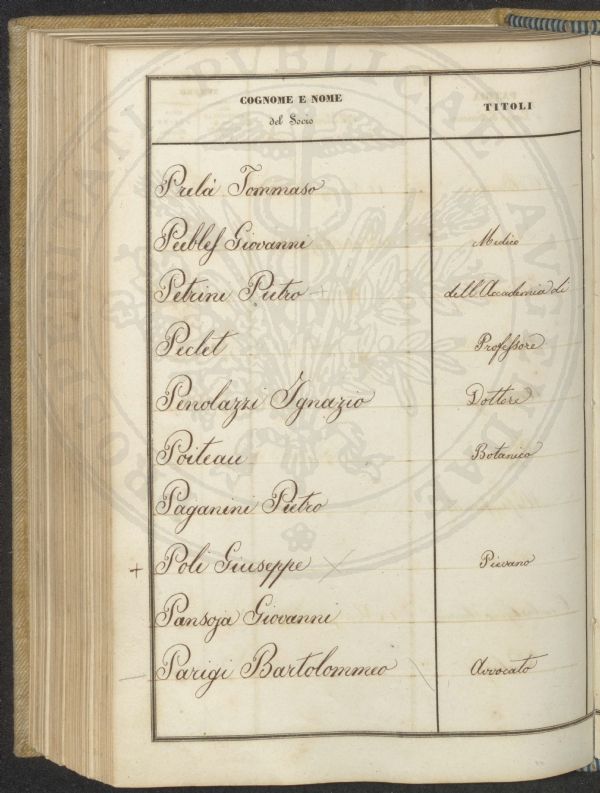 COGNOME E NOME
del Socio
TITOLI
Prelà Tommaso
Peebles Giovanni Medico
Petrini Pietro + dell'Accademia di
Peclet Professore
Penolazzi Ignazio Dottore
Poiteau Botanico
Paganini Pietro
+ Poli Giuseppe Pievano
Pansoja Giovanni
Parigi Bartolommeo Avvocato